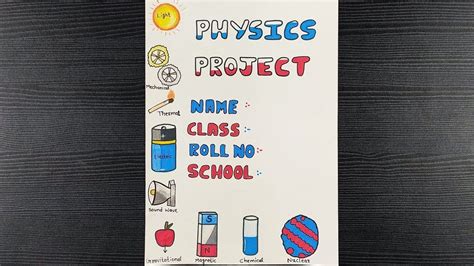 Light
PHYSICS
PROJECT
Mechanical
Thermal
NAME :-
CLASS :-
ROLL NO :-
SCHOOL :-
Electric
Sound Wave
S
N
Gravitational
Magnetic
Chemical
Nuclear